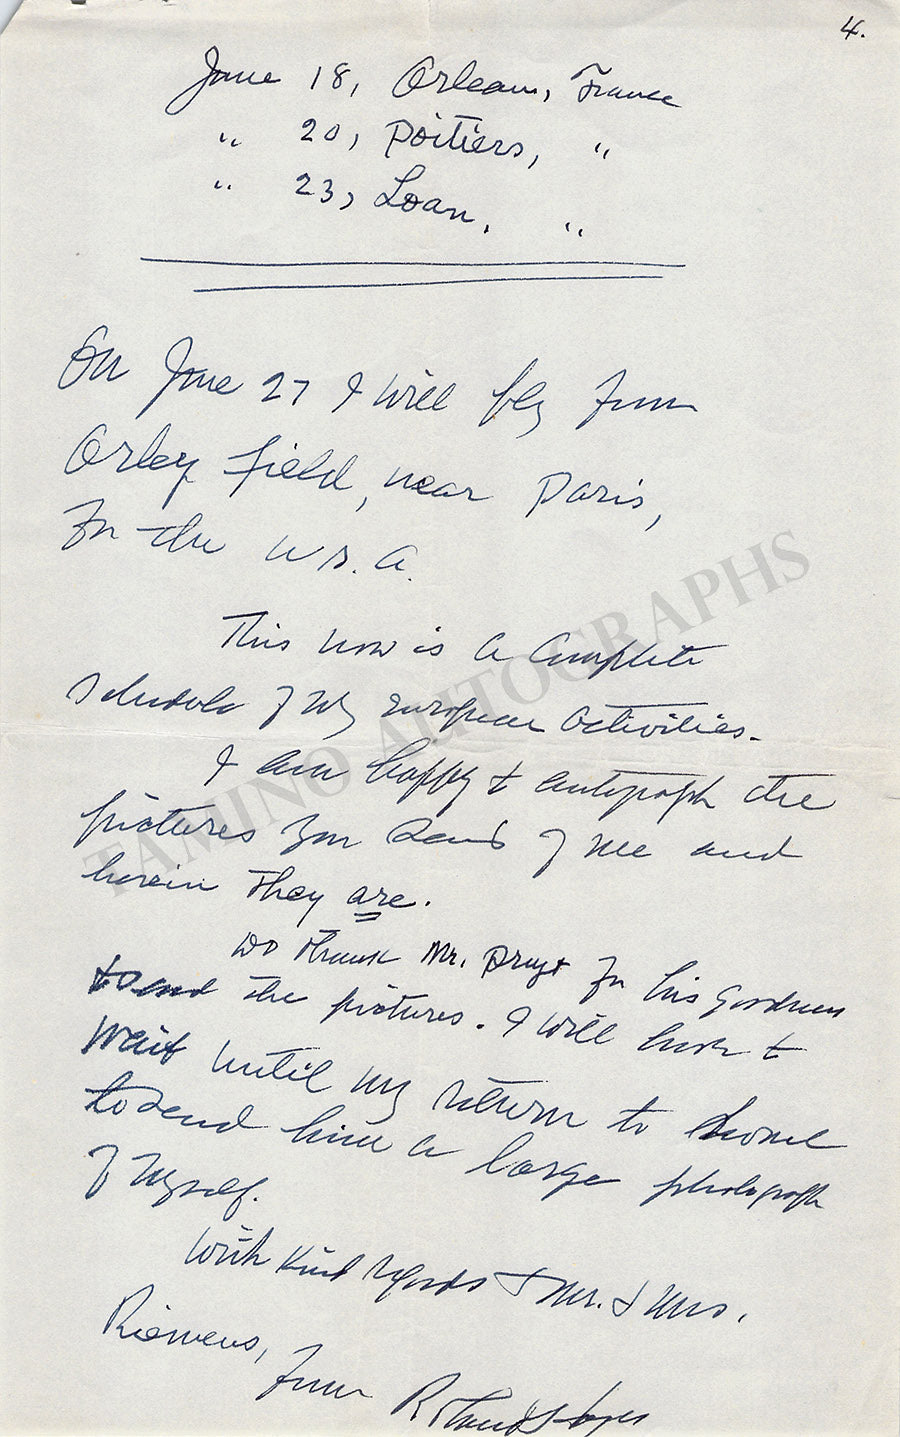 4.
June 18, Orleans, France
" 20, Poitiers, "
" 23, Loan, "
On June 27 I will fly from
Orley Field, near Paris,
for the U.S.A.
This now is a complete
schedule of my European activities.
I am happy to autograph the
pictures you send of me and
herein they are.
Do thank Mr. for his goodness
to send the pictures. I will have to
wait until my return to home
to send him a large photograph
of myself.
With kind regards to Mr. & Mrs.
Riemens,
from Roland Hayes
TAMINO AUTOGRAPHS